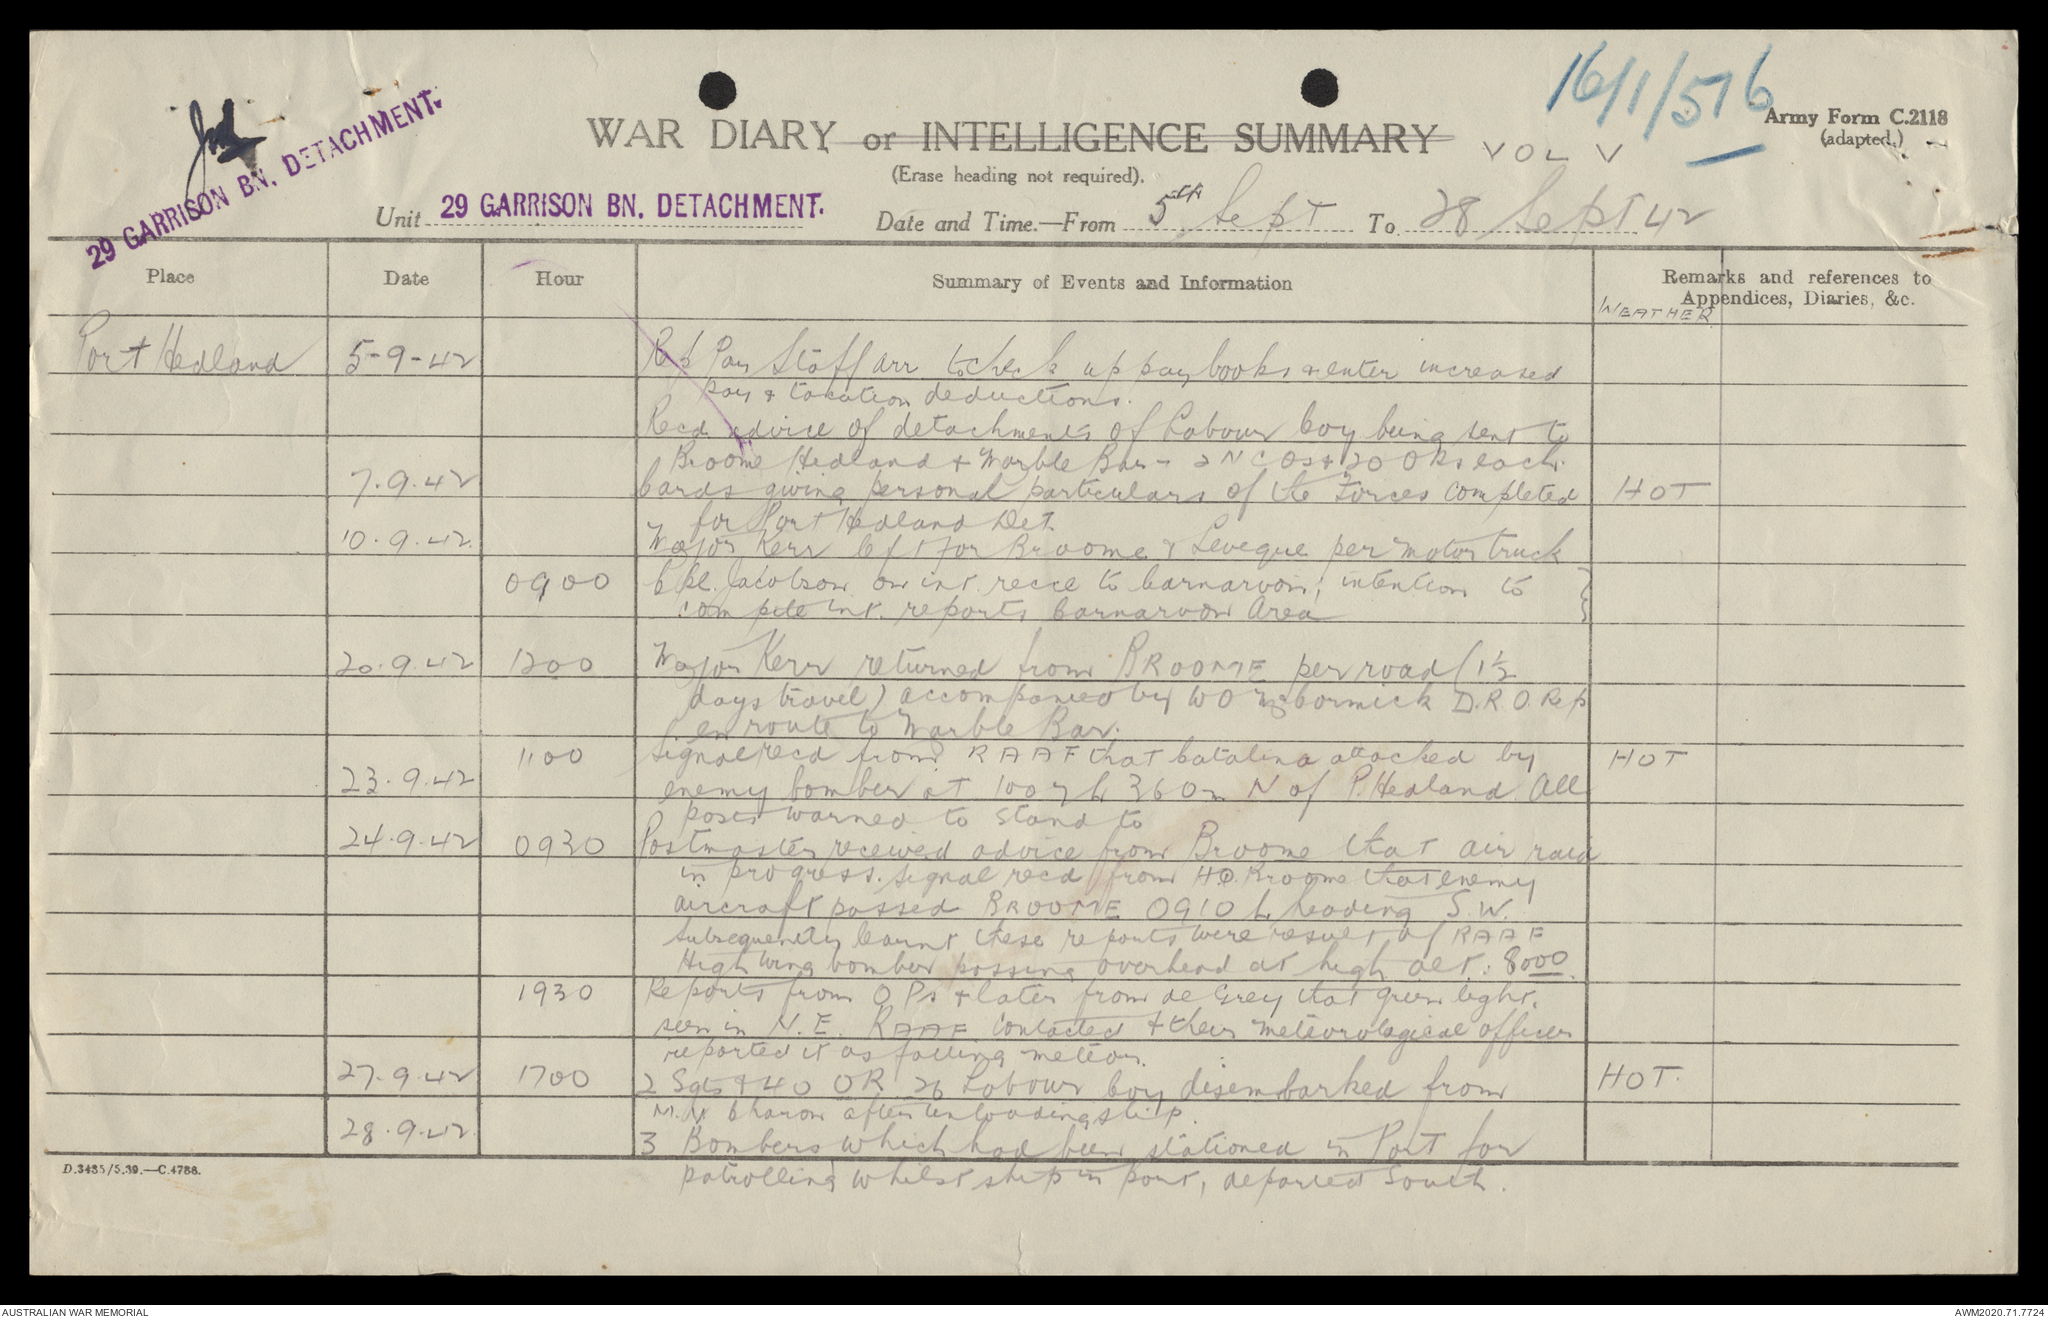 16/1/576
Army Form C.2118
(adapted.)
29 GARRISON BN. DETACHMENT.
WAR DIARY or INTELLIGENCE SUMMARY
VOL V
(Erase heading not required).
Unit 29 GARRISON BN. DETACHMENT. Date and Time.—From 5th Sept To 28 Sept 42
Place Date Hour Summary of Events and Information Remarks and references to
Appendices, Diaries, &c.
WEATHER
Port Hedland 5-9-42 Rep Pay Staff arr to check up paybooks & enter increased
pay & taxation deductions.
Recd advice of detachments of Labour Coy being sent to
Broome Hedland & Marble Bar - 2 NCOs & 20 ORs each.
7.9.42 Cards giving personal particulars of the Forces completed HOT
for Port Hedland Det.
10.9.42 Major Kerr left for Broome & Leveque per motor truck
0900 Cpl. Jacobson on int. recce to Carnarvon; intention to
compile int. reports Carnarvon Area
20.9.42 1200 Major Kerr returned from BROOME per road (1½
days travel) accompanied by WO McCormick D.R.O. Rep
en route to Marble Bar.
1100 Signal recd from RAAF that Catalina attacked by HOT
23.9.42 enemy bomber at 1007 h 360 m N of P. Hedland. All
posts warned to stand to
24.9.42 0930 Postmaster received advice from Broome that air raid
in progress. Signal recd from HQ. Broome that enemy
aircraft passed BROOME 0910 h heading S.W.
Subsequently learnt these reports were result of RAAF
High wing bomber passing overhead at high alt. 8000
1930 Reports from O Ps & later from de Grey that green light
seen in N.E. RAAF contacted & their meteorological officer
reported it as falling meteor.
27.9.42 1700 2 Sgts & 40 OR 26 Labour Coy disembarked from HOT.
M.V. Charon after unloading ship.
28.9.42 3 Bombers which had been stationed in Port for
D.3435/5.39.—C.4786.
patrolling whilst ship in port, departed South.
AUSTRALIAN WAR MEMORIAL AWM2020.71.7724